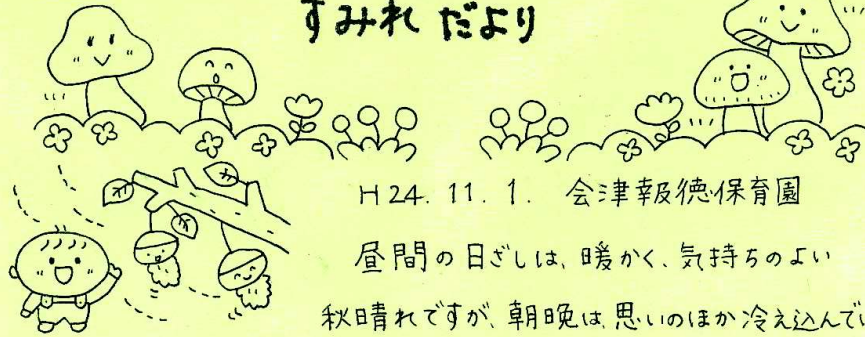 すみれ だより
H24. 11. 1. 会津報徳保育園
昼間の日ざしは、暖かく、気持ちのよい
秋晴れですが、朝晩は、思いのほか冷え込んでい